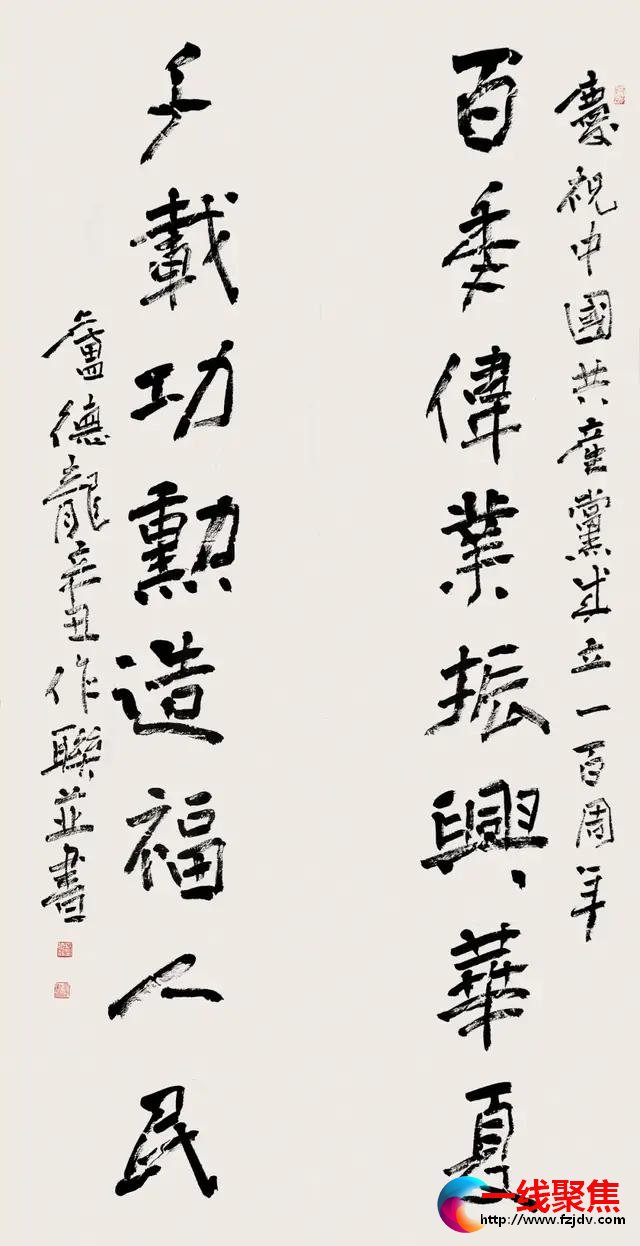 慶祝中國共産黨成立一百周年
百秊偉業振興華夏
千載功勳造福人民
盧德龍辛丑作聯並書
一线聚焦
http://www.fzjdv.com